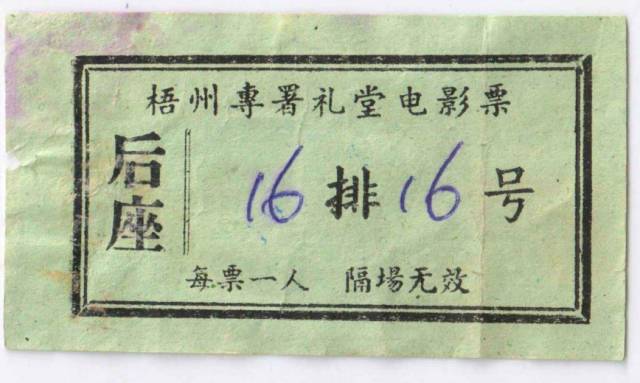 梧州專署礼堂电影票
后座
16排16号
每票一人 隔場无效